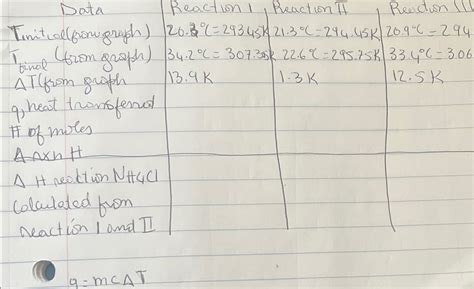 Data Reaction I Reaction II Reaction III
Tinitial (from graph) 20.3°C = 293.45K 21.3°C = 294.45K 20.9°C = 294
Tfinal (from graph) 34.2°C = 307.35K 22.6°C = 295.75K 33.4°C = 306
ΔT (from graph 13.9 K 1.3 K 12.5 K
q, heat transferred
# of moles
Δ rxn H
Δ H reaction NH4Cl
calculated from
reaction I and II
q = mcΔT